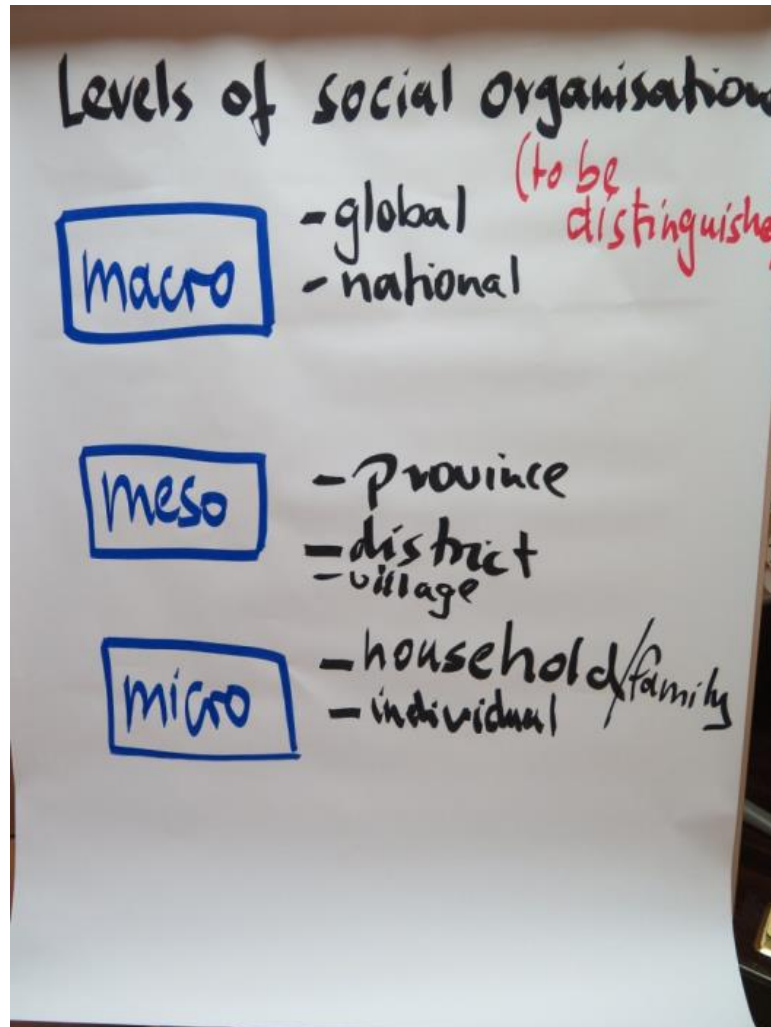 Levels of social organisation
(to be
distinguishe
macro
- global
- national
meso
- province
- district
- village
micro
- household/family
- individual